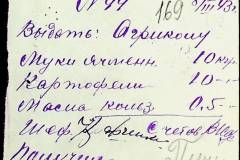 №44 169 8/III 43
Выдать: Агрикому
Муки ячменн. 10 кгр.
Картофели 10 "
Масла колез. 0,5 "
Шеф. Счетов.
Получил